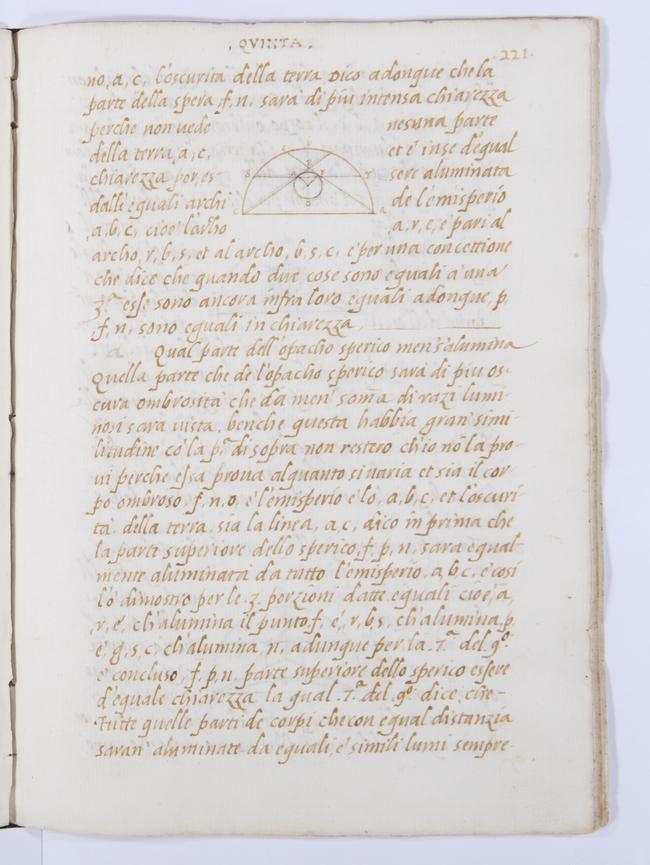 , QVINTA ,
221.
no, a, c, l'oscurita della terra Dico adonque che la
parte della spera, f, n, sara di piu intensa chiarezza
perche non vede nesuna parte
della terra, a, c, et e' in se d'egual
chiarezza per es- sere aluminata
dalli equali archi de l'emisperio
, a, b, c, cioe l'archo a, r, e, e' pari al
archo, r, b, s, et al archo, b, s, c, e' per una concettione
che dice che quando due cose sono equali a' una
3.ª esse sono ancora infra loro equali adonque, p,
, f, n, sono equali in chiarezza,
Qual parte dell'opacho sperico men s'alumina
Quella parte che de l'opacho sperico sara di piu os-
cura ombrosita che da men' soma di razi lumi-
nosi sara vista. benche questa habbia gran simi-
litudine cō la p.ª di sopra non restero ch'io nō la pro-
vi perche essa prova alquanto si varia et sia il cor-
po ombroso, f, n, o, e' l'emisperio e lo, a, b, c, et l'oscuri
ta della terra sia la linea, a, c, dico in prima che
la parte superiore dello sperico, f, p, n, sara equal-
mente aluminata da tutto l'emisperio, a, b, c, e' cosi
l'o dimostro per le 3 porzioni datte equali cioe, a,
, r, e', ch'alumina il punto, f, e', r, b, s, ch'alumina, p,
e' g, s, c, ch'alumina, n, adunque per la 7.ª del 9º
e' concluso, f, p, n, parte superiore dello sperico essere
d'equale chiarezza la qual 7.ª del 9º dice, che-
Tutte quelle parti de corpi che con equal distanzia
saran' aluminate da equali, e' simili lumi sempre-